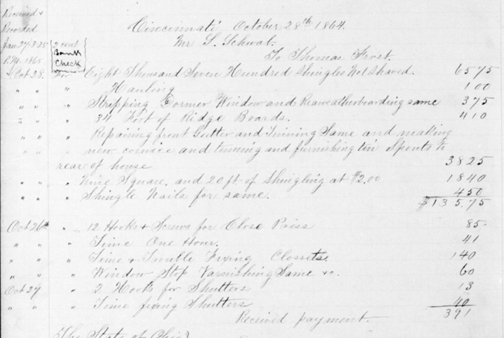 Received &
Recorded
Jany 27 1865
Cincinnati October 28th 1864.
Mr L. Schwab.
To Thomas Frost.
Bank
Check
Oct 28. Eight Thousand Seven Hundred Shingles Not Shaved. 65 75
" " Hauling 1 00
" " Stripping Dormer Window and Reweatherboarding same 3 75
" " 84 Feet of Ridge Boards. 4 10
" " Repairing front Gutter and Lining Same and making
new cornice and lining and furnishing tin Spouts to
rear of house 38 25
" " Nine Square, and 20 ft of Shingling at $2.00 18 40
" " Shingle Nails for same. 4 50
$135,75
Oct 26th " 12 Hooks & Screws for Close 85
" " Time One Hour. 41
" " Time & Fixing Closets 1 40
" " Window Stop Varnishing Same &c. 60
Oct 27 " 2 Hooks for Shutters 13
" " Time fixing Shutters 40
Received payment 3 91
The State of Ohio